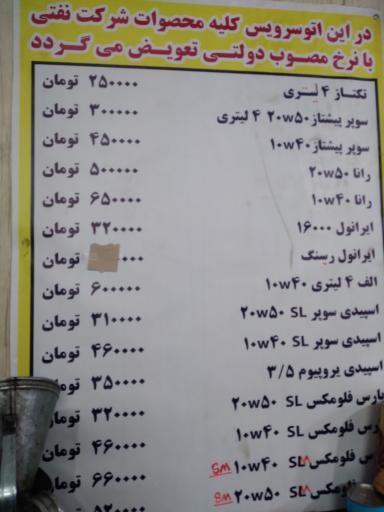 در این اتوسرویس کلیه محصوات شرکت نفتی
با نرخ مصوب دولتی تعویض می گردد
تکتاز ۴ لیتری ۲۵۰۰۰۰ تومان
سوپر پیشتاز ۲۰w۵۰ ۴ لیتری ۳۰۰۰۰۰ تومان
سوپر پیشتاز ۱۰w۴۰ ۴۵۰۰۰۰ تومان
رانا ۲۰w۵۰ ۵۰۰۰۰۰ تومان
رانا ۱۰w۴۰ ۶۵۰۰۰۰ تومان
ایرانول ۱۶۰۰۰ ۳۲۰۰۰۰ تومان
ایرانول رسنگ ۰۰۰ تومان
الف ۴ لیتری ۱۰w۴۰ ۶۰۰۰۰۰ تومان
اسپیدی سوپر SL ۲۰w۵۰ ۳۱۰۰۰۰ تومان
اسپیدی سوپر SL ۱۰w۴۰ ۴۶۰۰۰۰ تومان
اسپیدی یروپیوم ۳/۵ ۳۵۰۰۰۰ تومان
پارس فلومکس SL ۲۰w۵۰ ۳۲۰۰۰۰ تومان
پارس فلومکس SL ۱۰w۴۰ ۴۶۰۰۰۰ تومان
فلومکس SL ۱۰w۴۰ SM ۶۶۰۰۰۰ تومان
فلومکس SL ۲۰w۵۰ SM تومان